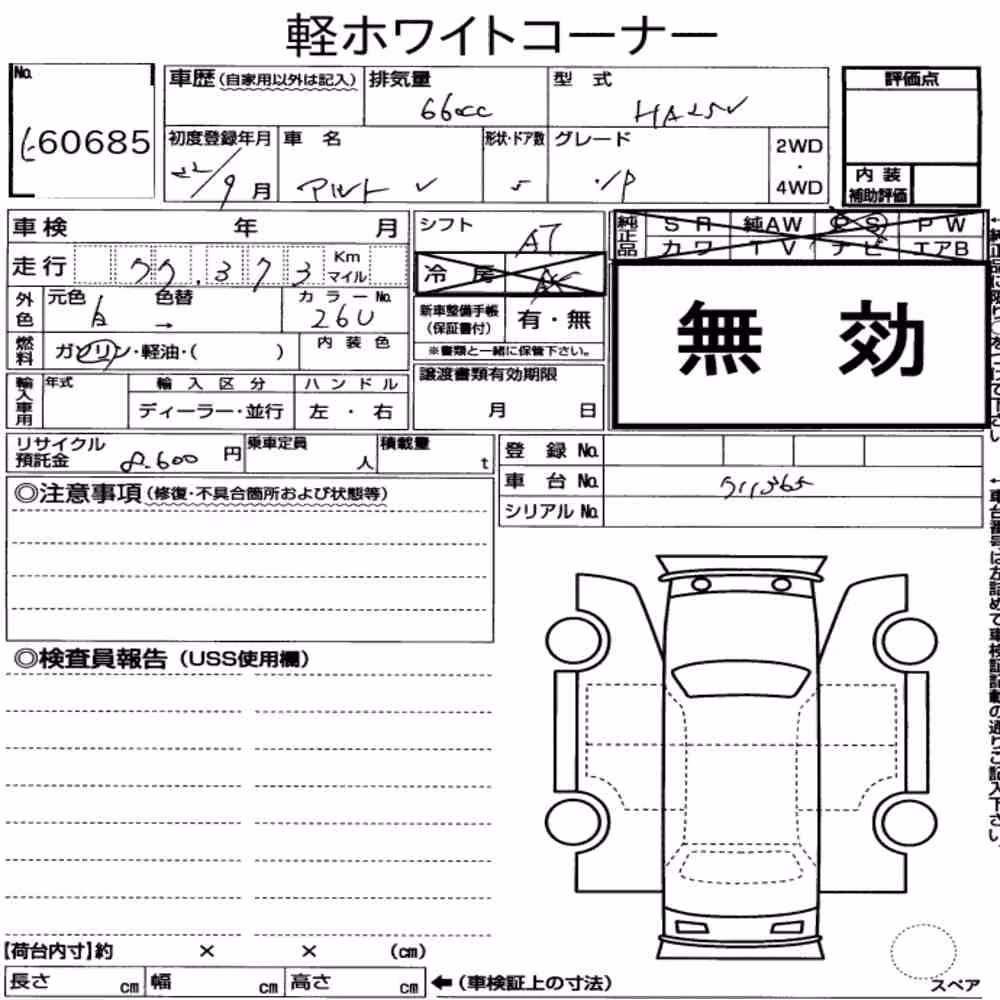 軽ホワイトコーナー
No.
60685
車歴(自家用以外は記入)
排気量
660cc
型 式
HA25V
評価点
初度登録年月
22/9月
車 名
アルト V
形状・ドア数
5
グレード
VP
2WD
・
4WD
内 装
補助評価
車検 年 月
走行 77,373 Km マイル
外色
元色 白
色替 →
カラーNo.
26U
燃料
ガソリン・軽油・( )
内 装 色
輸入車用
年式
輸 入 区 分
ディーラー・並行
ハ ン ド ル
左 ・ 右
シフト
AT
冷 房
AC
新車整備手帳
(保証書付)
有・無
※書類と一緒に保管下さい。
譲渡書類有効期限
月 日
純正品
S R
純AW
P S
P W
カ ワ
T V
ナ ビ
エアB
無 効
リサイクル
預託金
8.600 円
乗車定員
人
積載量
t
登 録 No.
車 台 No.
711365
シリアル No.
◎注意事項(修復・不具合箇所および状態等)
◎検査員報告(USS使用欄)
【荷台内寸】約 × × (cm)
長さ cm
幅 cm
高さ cm
←(車検証上の寸法)
スペア
↑車台番号は左詰めで車検証記載の通りご記入下さい。